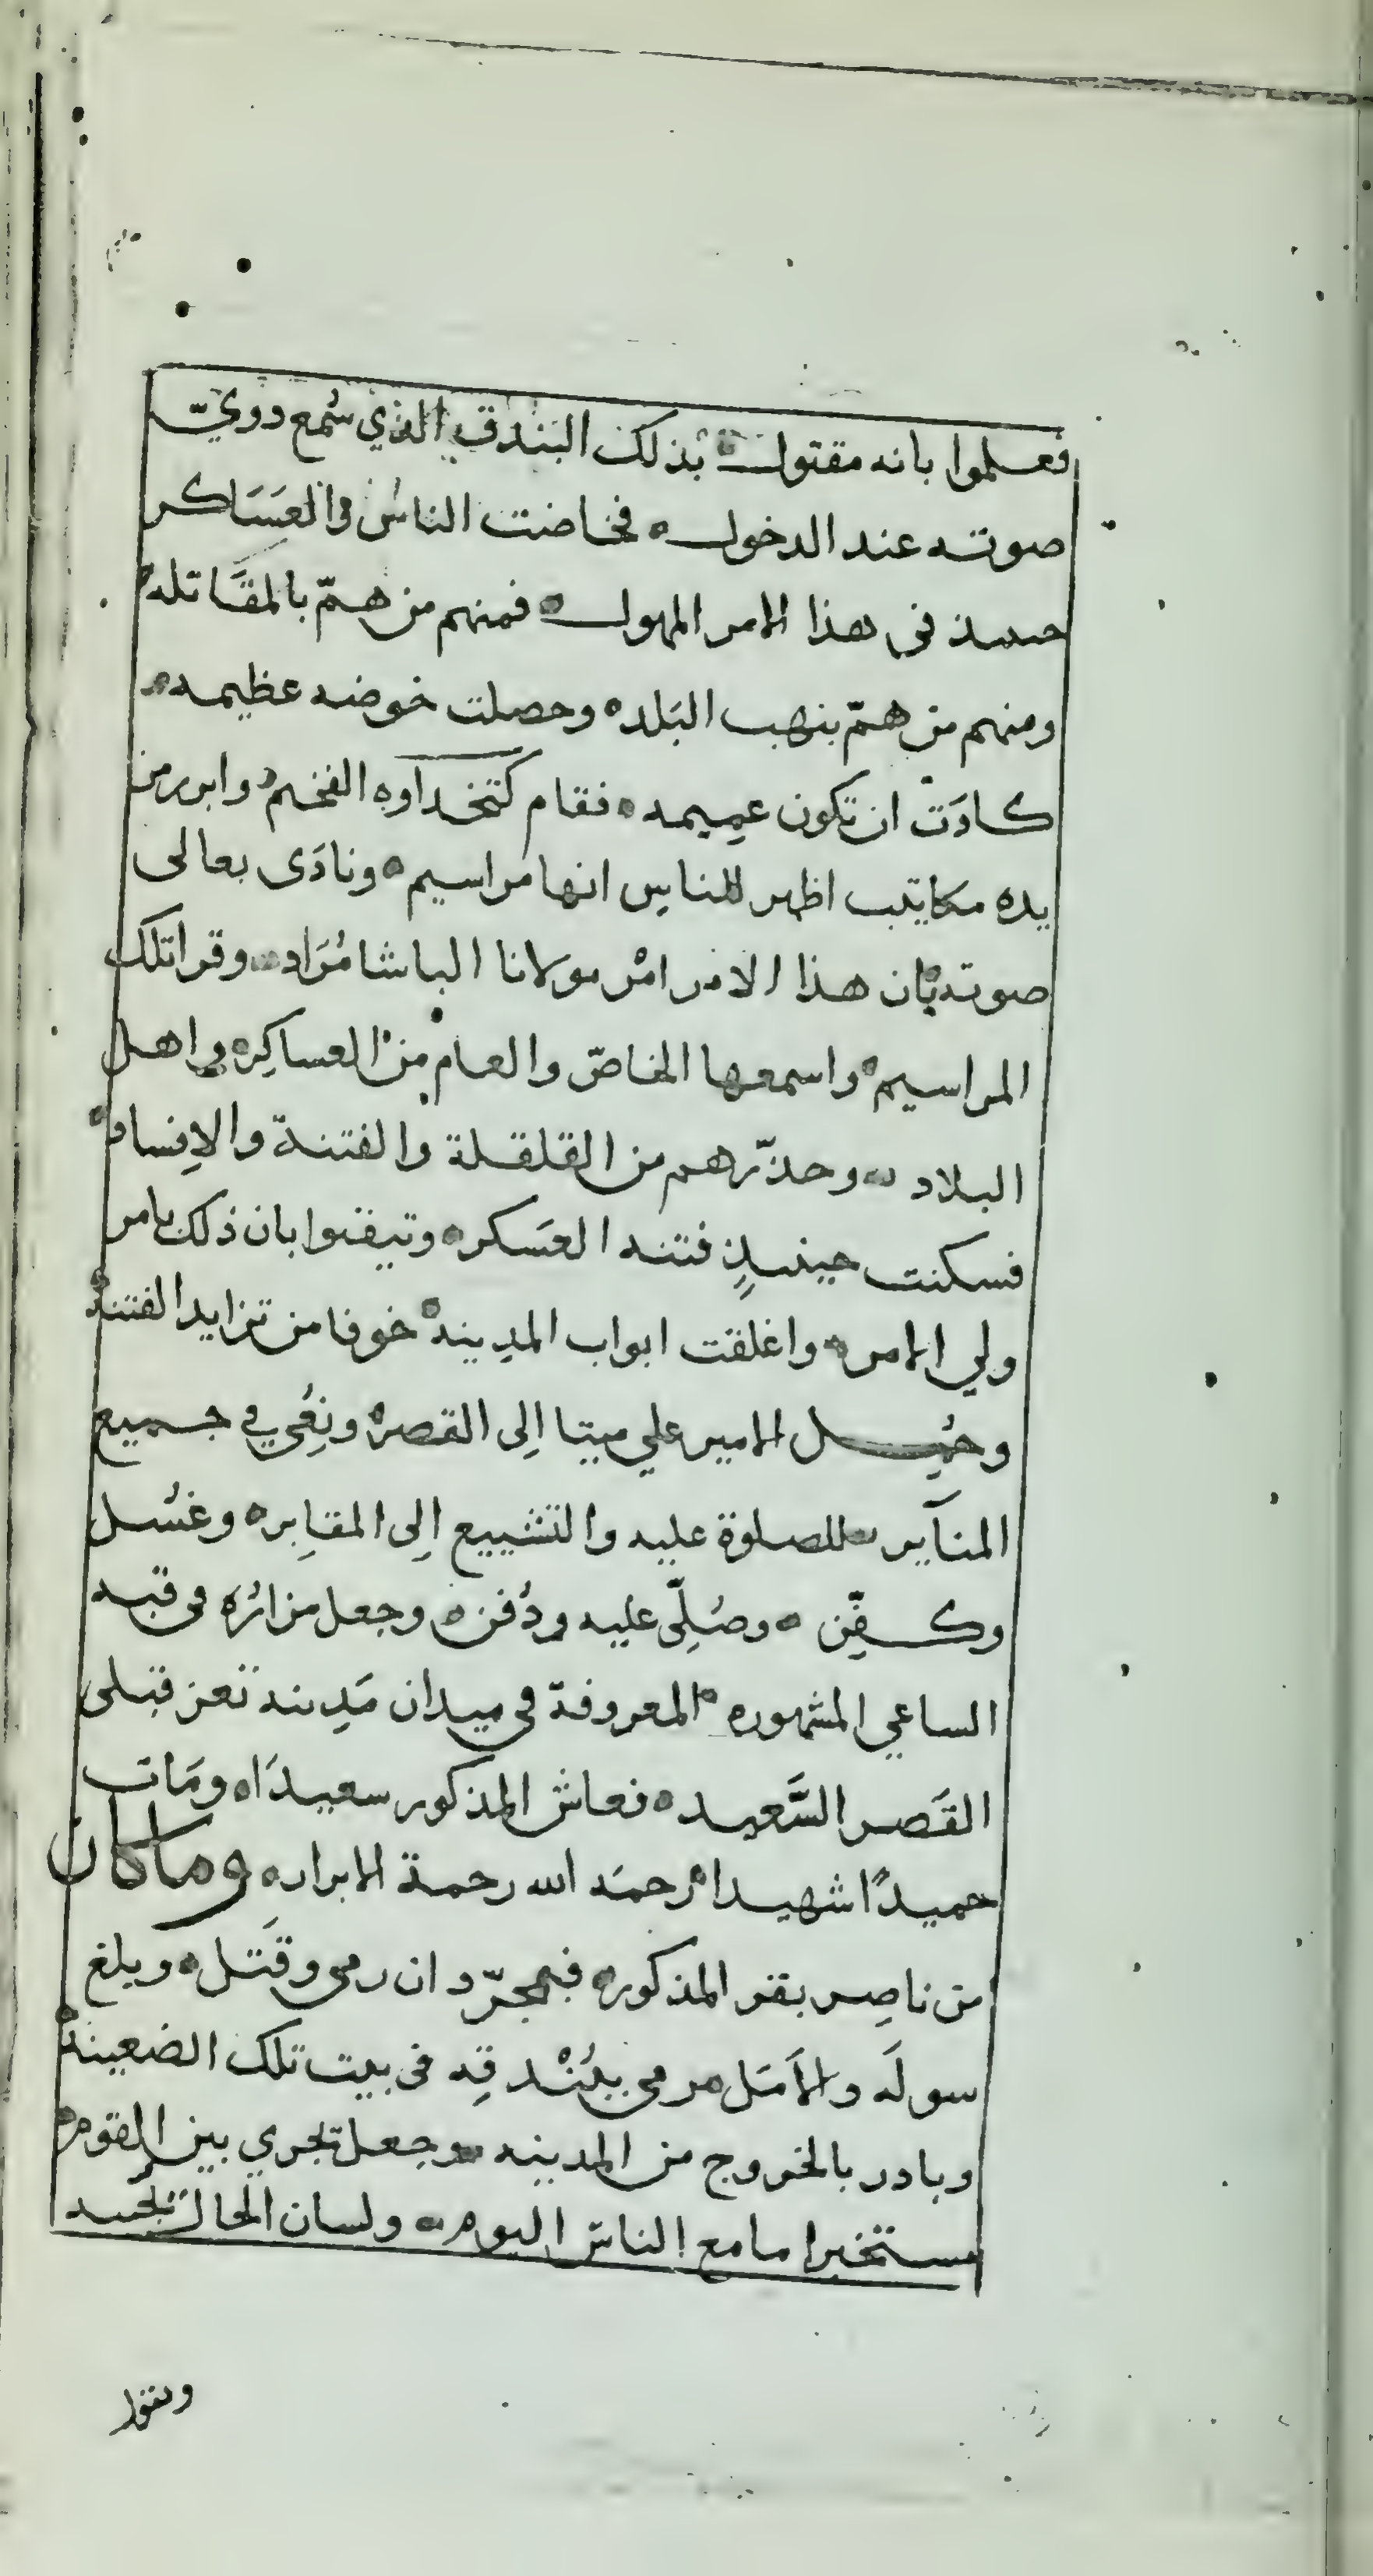 فعلموا بانه مقتول بذلك البندق الذي سُمع دويّ
صوته عند الدخول فخاضت الناسُ والعَسَاكر
حىىىذ فى هذا الامر المهول فمنهم من همّ بالمقَاتله
ومنهم من همّ بنهب البَلده وحصلت خوضه عظيمه
كادَتْ ان تكون عميمه فقام كتخداوه الفخم وابرز من
يده مكاتيب اظهر للناسِ انها مراسيم ونادَى بعالى
صوته بان هذا الامر امْر مولانا الباشا مُرَاد وقرا تلك
المراسيم واسمعها الخاصّ والعام من العساكِر واهل
البلاد وحذّرهم من القلقلة والفتنة والاِفساد
فسكنت حينىىذٍ فتنه العسَكر وتيقنوا بان ذلك بامر
ولي الامر واغلقت ابواب المدِينه خوفا من تزايد الفتنه
وحُمِل الامير علي ميتا اِلى القصر ونِعُي في جميع
المنآير للصلوة عليه والتشييع اِلى المقابِر وغسُل
وكفّن وصُلّى عليه ودُفن وجعل مزارُه فى قبه
الساعي المشهوره المعروفة في ميدان مَدِىنه تعز قبلى
القَصر السَّعيد فعاش المذكور سعيدَا ومَات
حميدًا شهيدا رحمَه الله رحمة الابرار وما كان
من ناصِر بقر المذكور فبمجرّد ان رمى وقَتَل وبلغ
سولَه والاَمَل رمى ببُنْدقِه فى بيت تلك الضعينه
وبادر بالخروج من المدينه وجعل تجري بين القوم
مستخبرا ما مع الناس اليوم ولسان الحال تجىىه